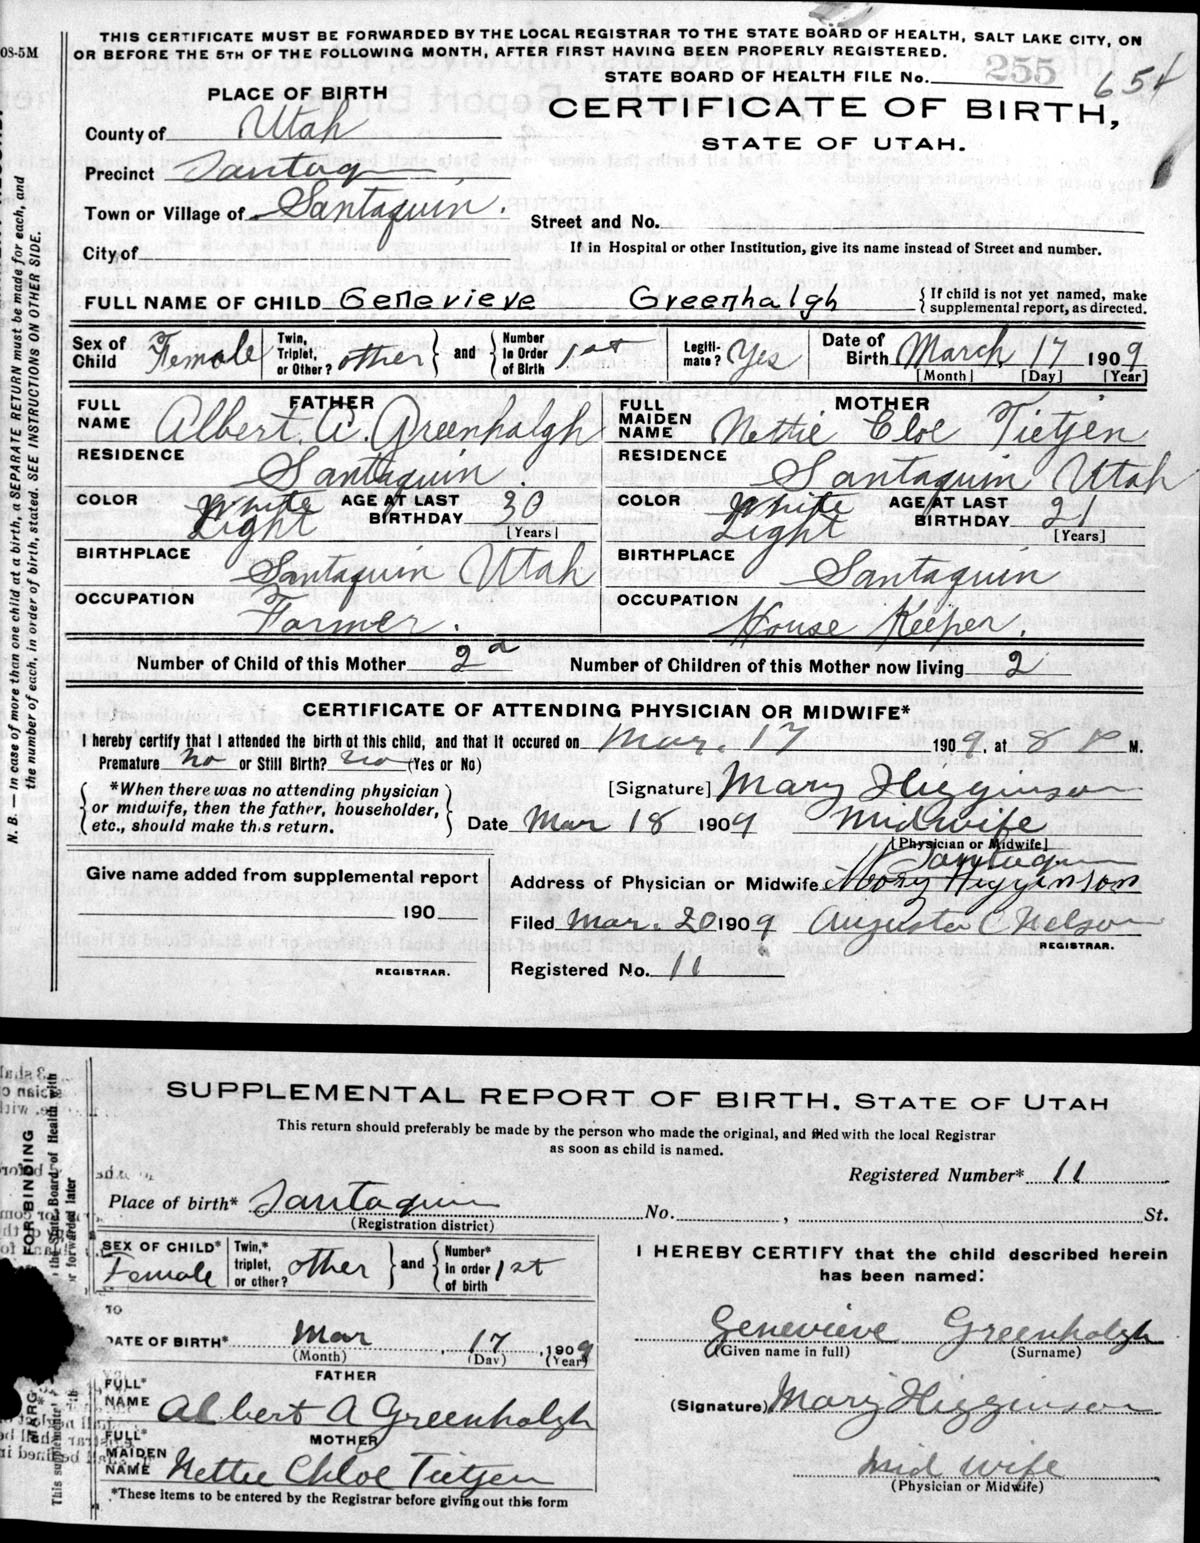 THIS CERTIFICATE MUST BE FORWARDED BY THE LOCAL REGISTRAR TO THE STATE BOARD OF HEALTH, SALT LAKE CITY, ON
OR BEFORE THE 5TH OF THE FOLLOWING MONTH, AFTER FIRST HAVING BEEN PROPERLY REGISTERED.
08-5M
STATE BOARD OF HEALTH FILE No. 255 654
PLACE OF BIRTH
CERTIFICATE OF BIRTH,
STATE OF UTAH.
County of Utah
Precinct Santaquin
Town or Village of Santaquin.
Street and No.
City of
If in Hospital or other Institution, give its name instead of Street and number.
FULL NAME OF CHILD Genevieve Greenhalgh { If child is not yet named, make supplemental report, as directed.
Sex of Child Female Twin, Triplet, or Other? other } and { Number In Order of Birth 1st Legiti- mate? Yes Date of Birth March 17 1909
[Month] [Day] [Year]
FATHER
FULL NAME Albert A. Greenhalgh
MOTHER
FULL MAIDEN NAME Nettie Cloe Tietjen
RESIDENCE Santaquin.
RESIDENCE Santaquin Utah
COLOR White Light AGE AT LAST BIRTHDAY 30 [Years]
COLOR White Light AGE AT LAST BIRTHDAY 21 [Years]
BIRTHPLACE Santaquin Utah
BIRTHPLACE Santaquin
OCCUPATION Farmer.
OCCUPATION House Keeper.
Number of Child of this Mother 2d Number of Children of this Mother now living 2
CERTIFICATE OF ATTENDING PHYSICIAN OR MIDWIFE*
I hereby certify that I attended the birth of this child, and that it occured on Mar. 17 1909, at 8 P M.
Premature No or Still Birth? No (Yes or No)
{ *When there was no attending physician
or midwife, then the father, householder,
etc., should make this return. }
[Signature] Mary Higginson
Date Mar 18 1909 Midwife
[Physician or Midwife]
Santaquin
Address of Physician or Midwife Mary Higginson
Filed Mar. 20 1909 Augusta C Nelson
REGISTRAR.
Registered No. 11
Give name added from supplemental report
190
REGISTRAR.
N. B. — In case of more than one child at a birth, a SEPARATE RETURN must be made for each, and
the number of each, in order of birth, stated. SEE INSTRUCTIONS ON OTHER SIDE.
SUPPLEMENTAL REPORT OF BIRTH, STATE OF UTAH
This return should preferably be made by the person who made the original, and filed with the local Registrar
as soon as child is named.
Registered Number* 11
Place of birth* Santaquin No. , St.
(Registration district)
SEX OF CHILD* Female Twin,* triplet, or other? other } and { Number* In order of birth 1st
I HEREBY CERTIFY that the child described herein
has been named:
DATE OF BIRTH* Mar 17, 1909
(Month) (Day) (Year)
Genevieve Greenhalgh
(Given name in full) (Surname)
FATHER
FULL* NAME Albert A Greenhalgh
(Signature) Mary Higginson
MOTHER
FULL* MAIDEN NAME Nettie Chloe Tietjen
Mid wife
(Physician or Midwife)
*These items to be entered by the Registrar before giving out this form
FOR BINDING